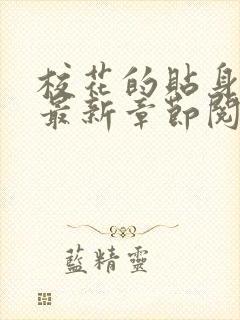 校花的貼身
最新章節閱
藍精靈